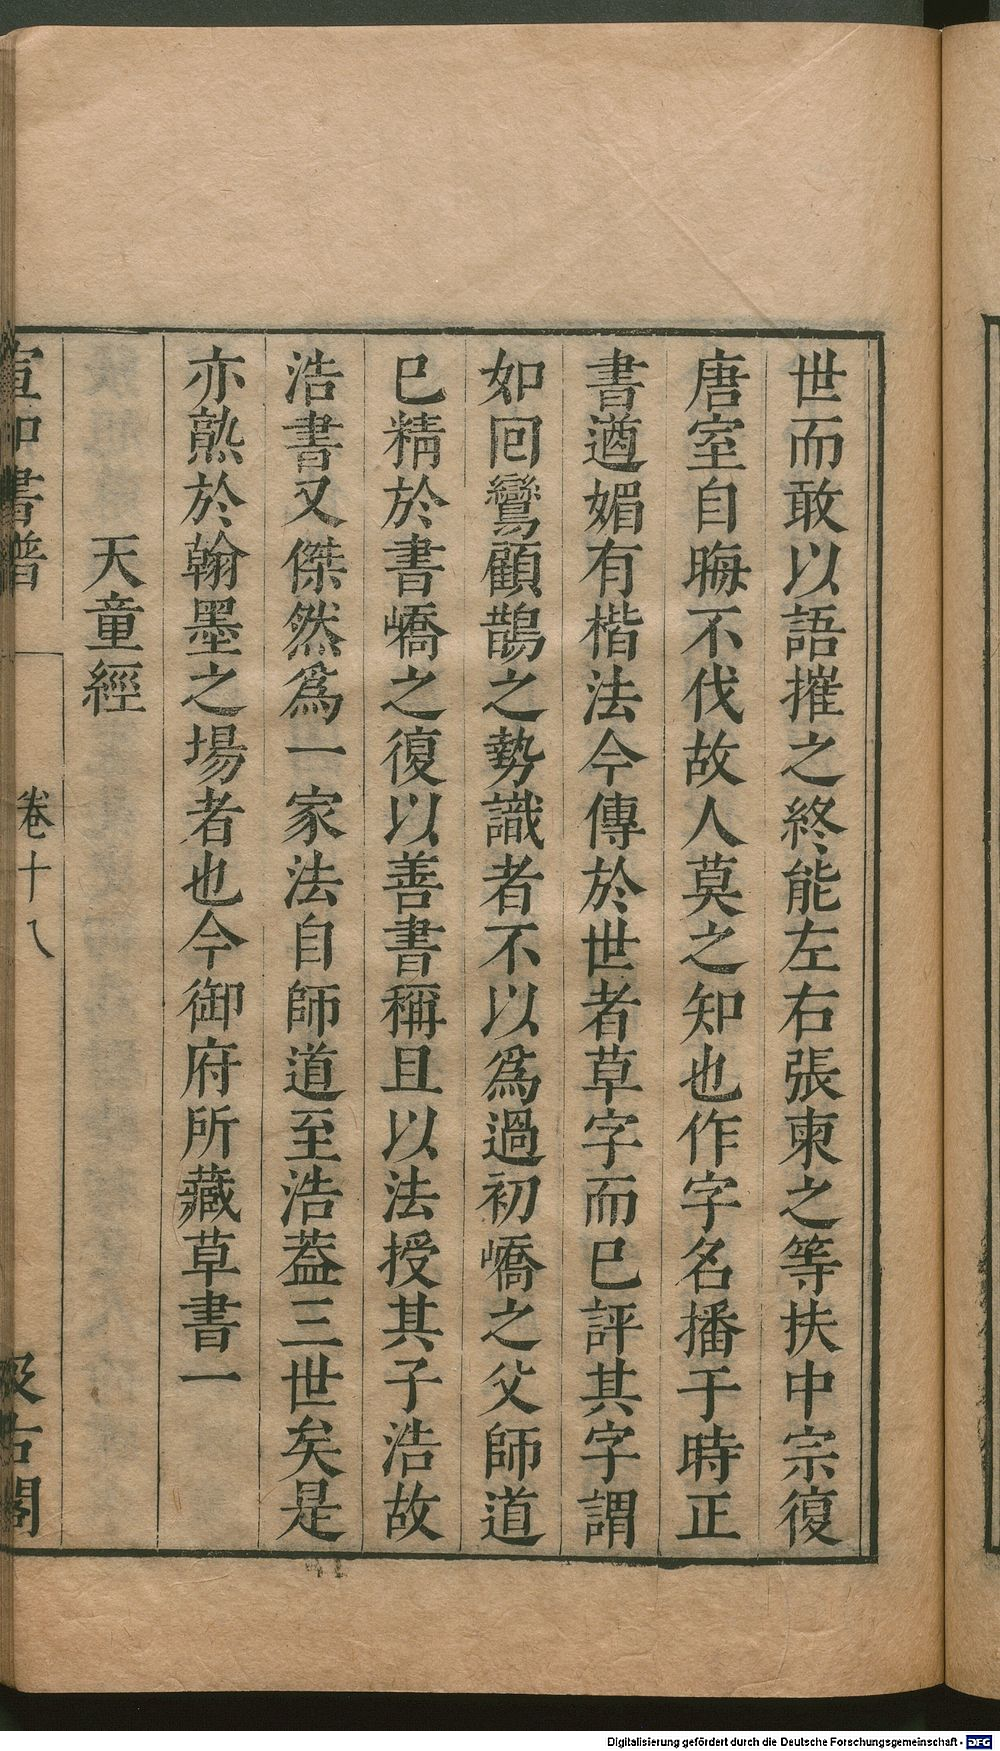 世而敢以語摧之終能左右張柬之等扶中宗復
唐室自晦不伐故人莫之知也作字名播于時正
書遒媚有楷法今傳於世者草字而已評其字謂
如回鸞顧鵲之勢識者不以為過初嶠之父師道
已精於書嶠之復以善書稱且以法授其子浩故
浩書又傑然為一家法自師道至浩蓋三世矣是
亦熟於翰墨之場者也今御府所藏草書一
天童經
宣和書譜 卷十八 汲古閣
Digitalisierung gefördert durch die Deutsche Forschungsgemeinschaft - DFG